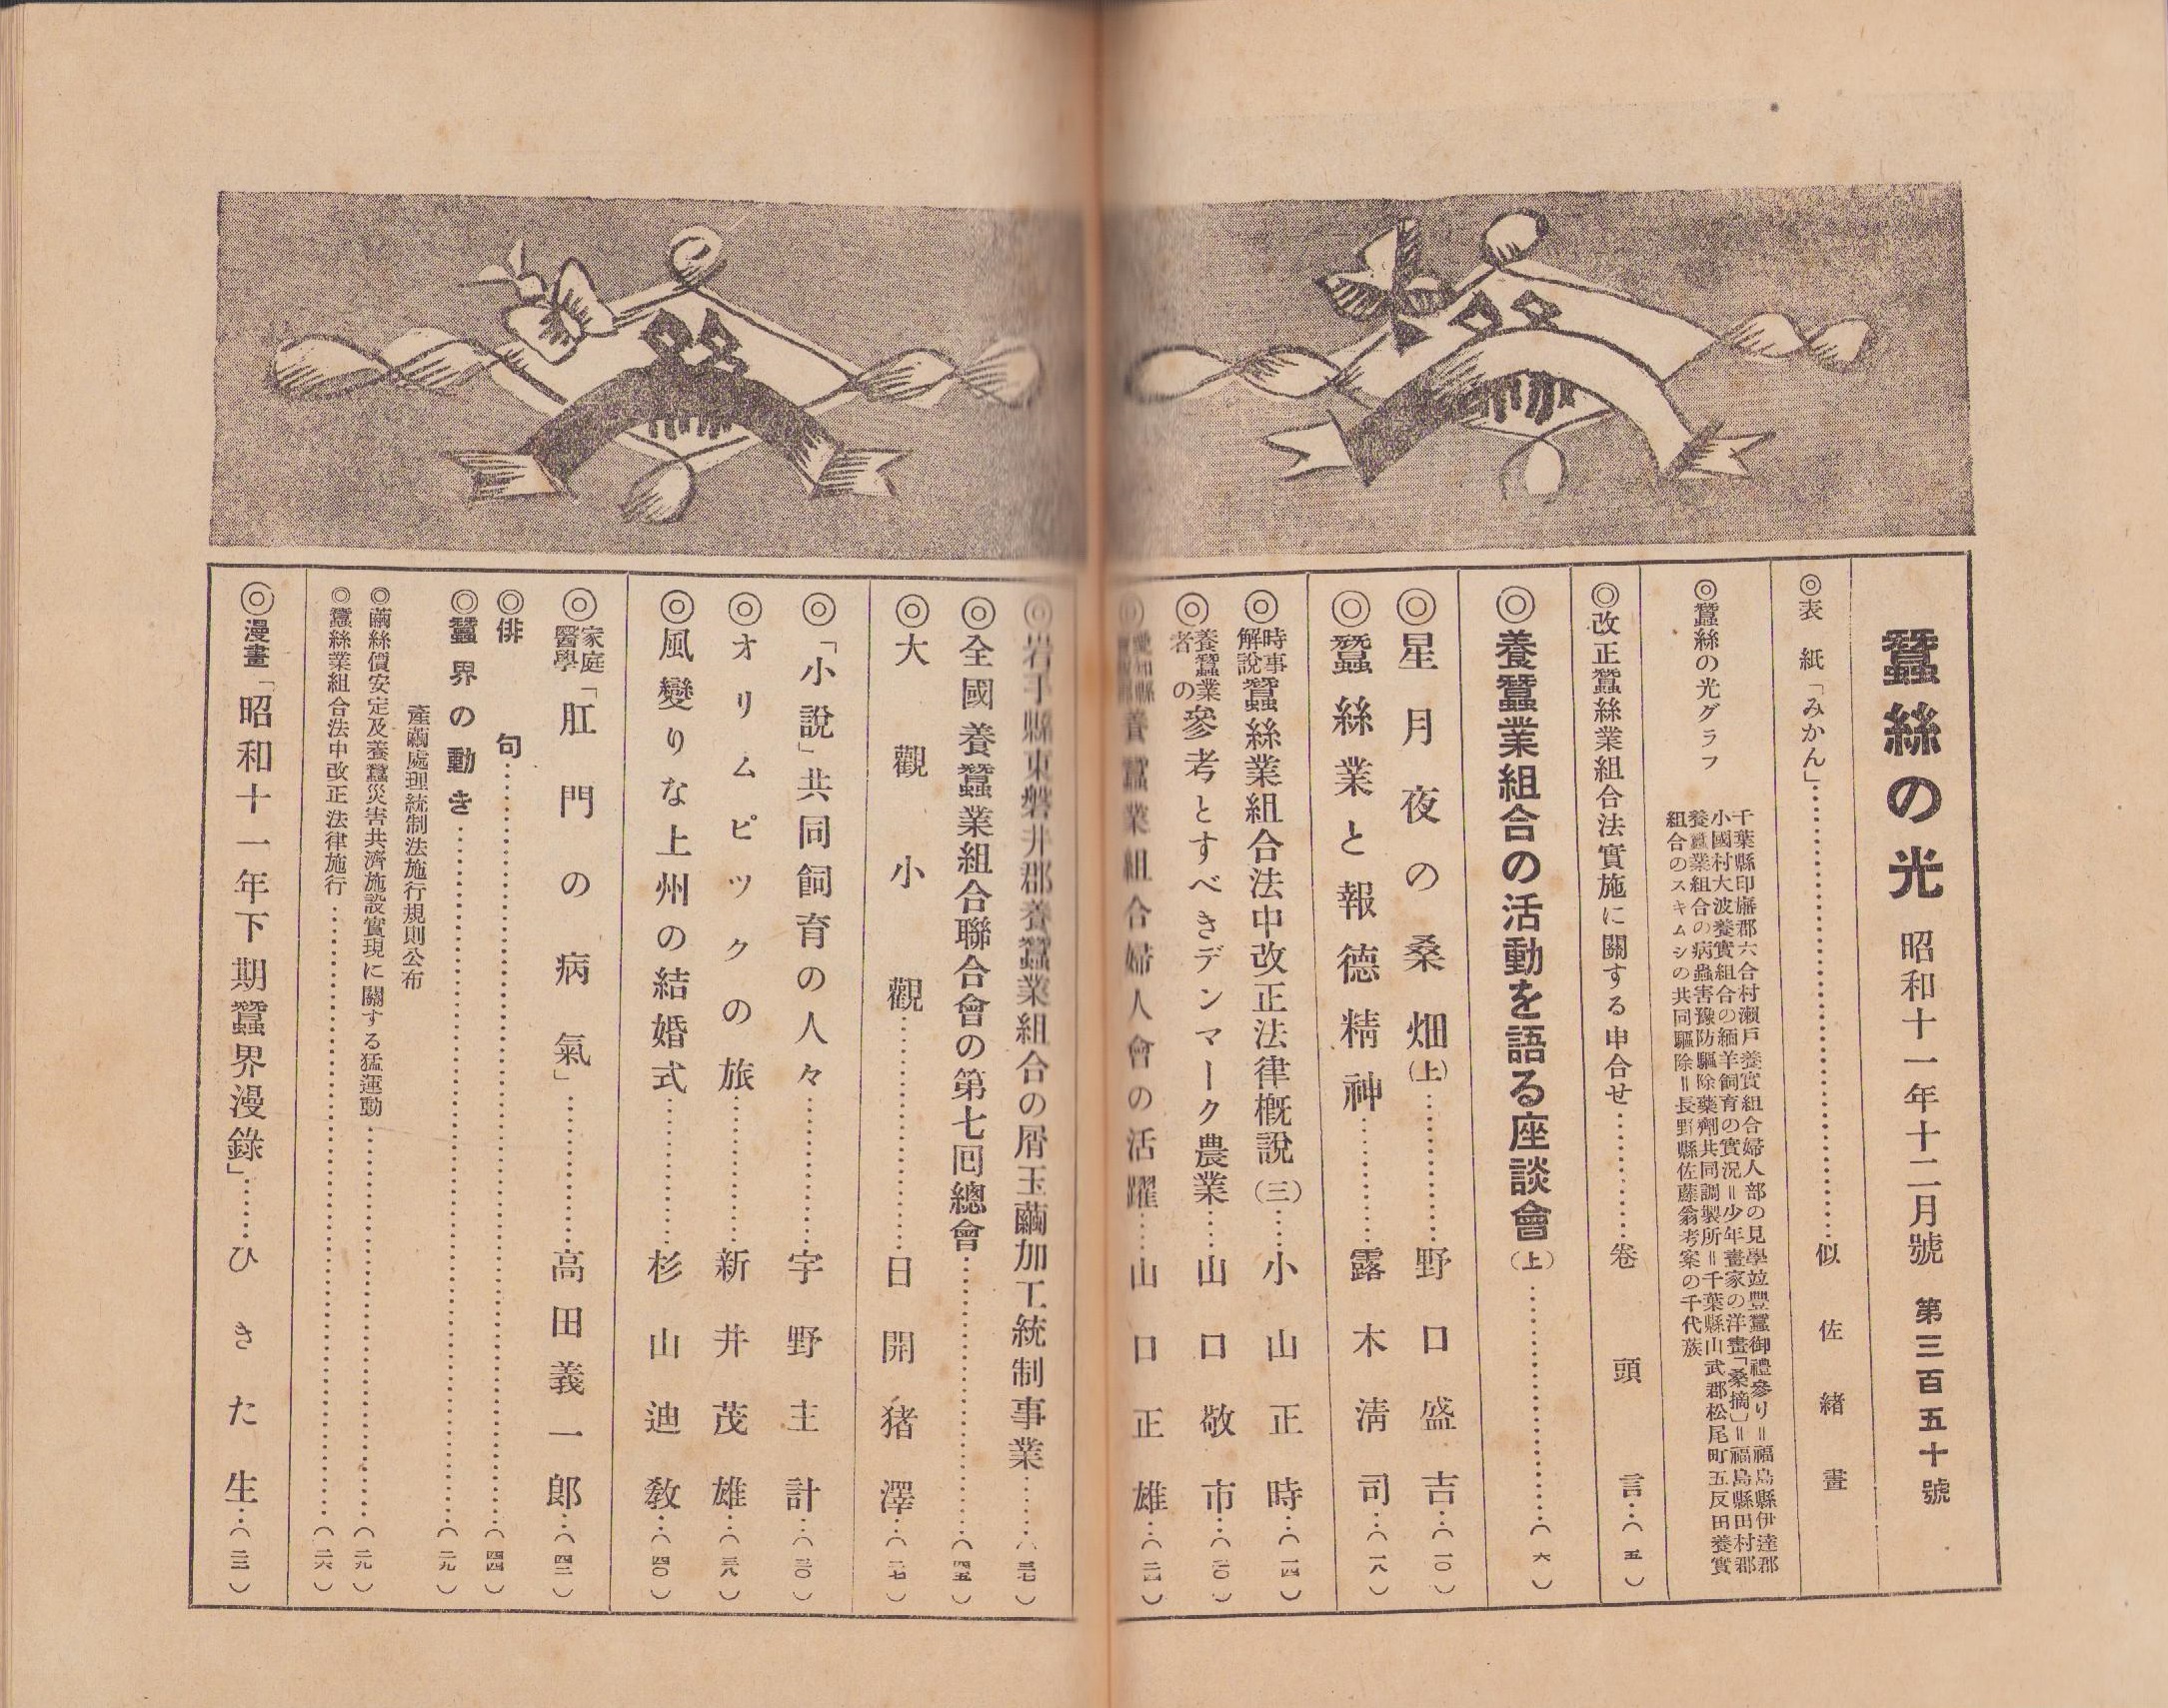 蠶絲の光 昭和十一年十二月號 第三百五十號
◎表紙「みかん」……似佐緒畫
◎蠶絲の光グラフ
千葉縣印旛郡六合村瀬戸養實組合婦人部の見學竝豐蠶御禮參り＝福島縣伊達郡
小國村大波養實組合の緬羊飼育の實況＝少年畫家の洋畫「桑摘」＝福島縣田村郡
養蠶業組合の病蟲害豫防驅除藥劑共同調製所＝千葉縣山武郡松尾町五反田養實
組合のスキムシの共同驅除＝長野縣佐藤翁考案の千代蔟
◎改正蠶絲業組合法實施に關する申合せ……卷頭言…（五）
◎養蠶業組合の活動を語る座談會（上）……（六）
◎星月夜の桑畑（上）……野口盛吉…（一〇）
◎蠶絲業と報德精神……露木淸司…（一八）
◎時事解說蠶絲業組合法中改正法律槪說（三）……小山正時…（一四）
◎養蠶業者の參考とすべきデンマーク農業……山口敬市…（二〇）
◎愛知縣養蠶業組合婦人會の活躍……山口正雄…（二四）
◎岩手縣東磐井郡養蠶業組合の屑玉繭加工統制事業……（三七）
◎全國養蠶業組合聯合會の第七囘總會……（四五）
◎大觀小觀……日開猪澤…（二七）
◎「小說」共同飼育の人々……宇野主計…（三〇）
◎オリムピックの旅……新井茂雄…（三八）
◎風變りな上州の結婚式……杉山迪敎…（四〇）
◎家庭醫學「肛門の病氣」……高田義一郎…（四二）
◎俳句……（四四）
◎蠶界の動き……（二九）
產繭處理統制法施行規則公布
◎繭絲價安定及養蠶災害共濟施設實現に關する猛運動……（二九）
◎蠶絲業組合法中改正法律施行……（二六）
◎漫畫「昭和十一年下期蠶界漫錄」……ひきた生…（三二）